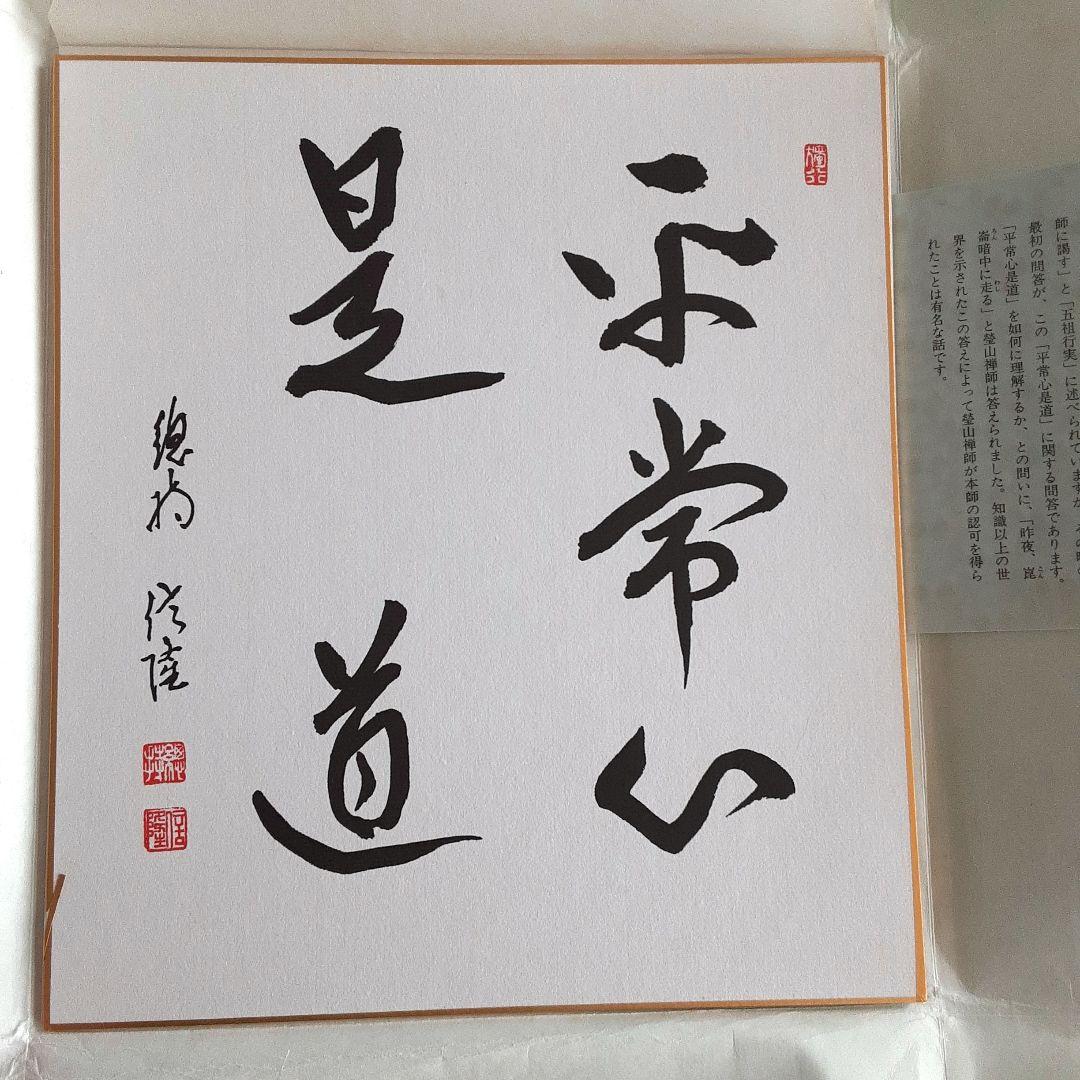 平常心
是道
總持 信隆
總持
信隆
師に謁す」と「五祖行実」に述べられていますが、その時の
最初の問答が、この「平常心是道」に関する問答であります。
「平常心是道」を如何に理解するか、との問いに、「昨夜、崑
崙暗中に走る」と瑩山禅師は答えられました。知識以上の世
界を示されたこの答えによって瑩山禅師が本師の認可を得ら
れたことは有名な話です。